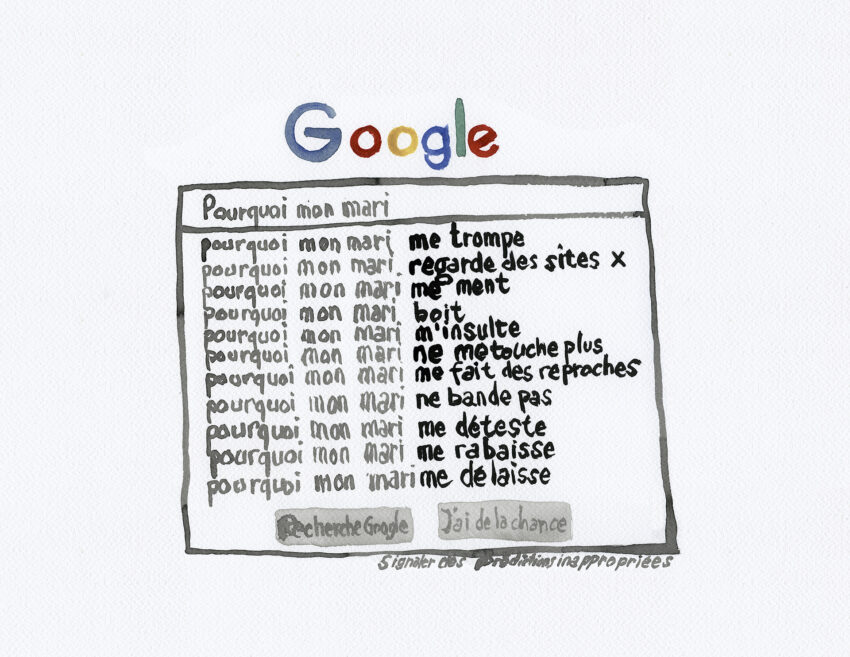 Google
Pourquoi mon mari
pourquoi mon mari me trompe
pourquoi mon mari regarde des sites x
pourquoi mon mari me ment
pourquoi mon mari boit
pourquoi mon mari m'insulte
pourquoi mon mari ne me touche plus
pourquoi mon mari me fait des reproches
pourquoi mon mari ne bande pas
pourquoi mon mari me déteste
pourquoi mon mari me rabaisse
pourquoi mon mari me délaisse
Recherche Google J'ai de la chance
Signaler des prédictions inappropriées